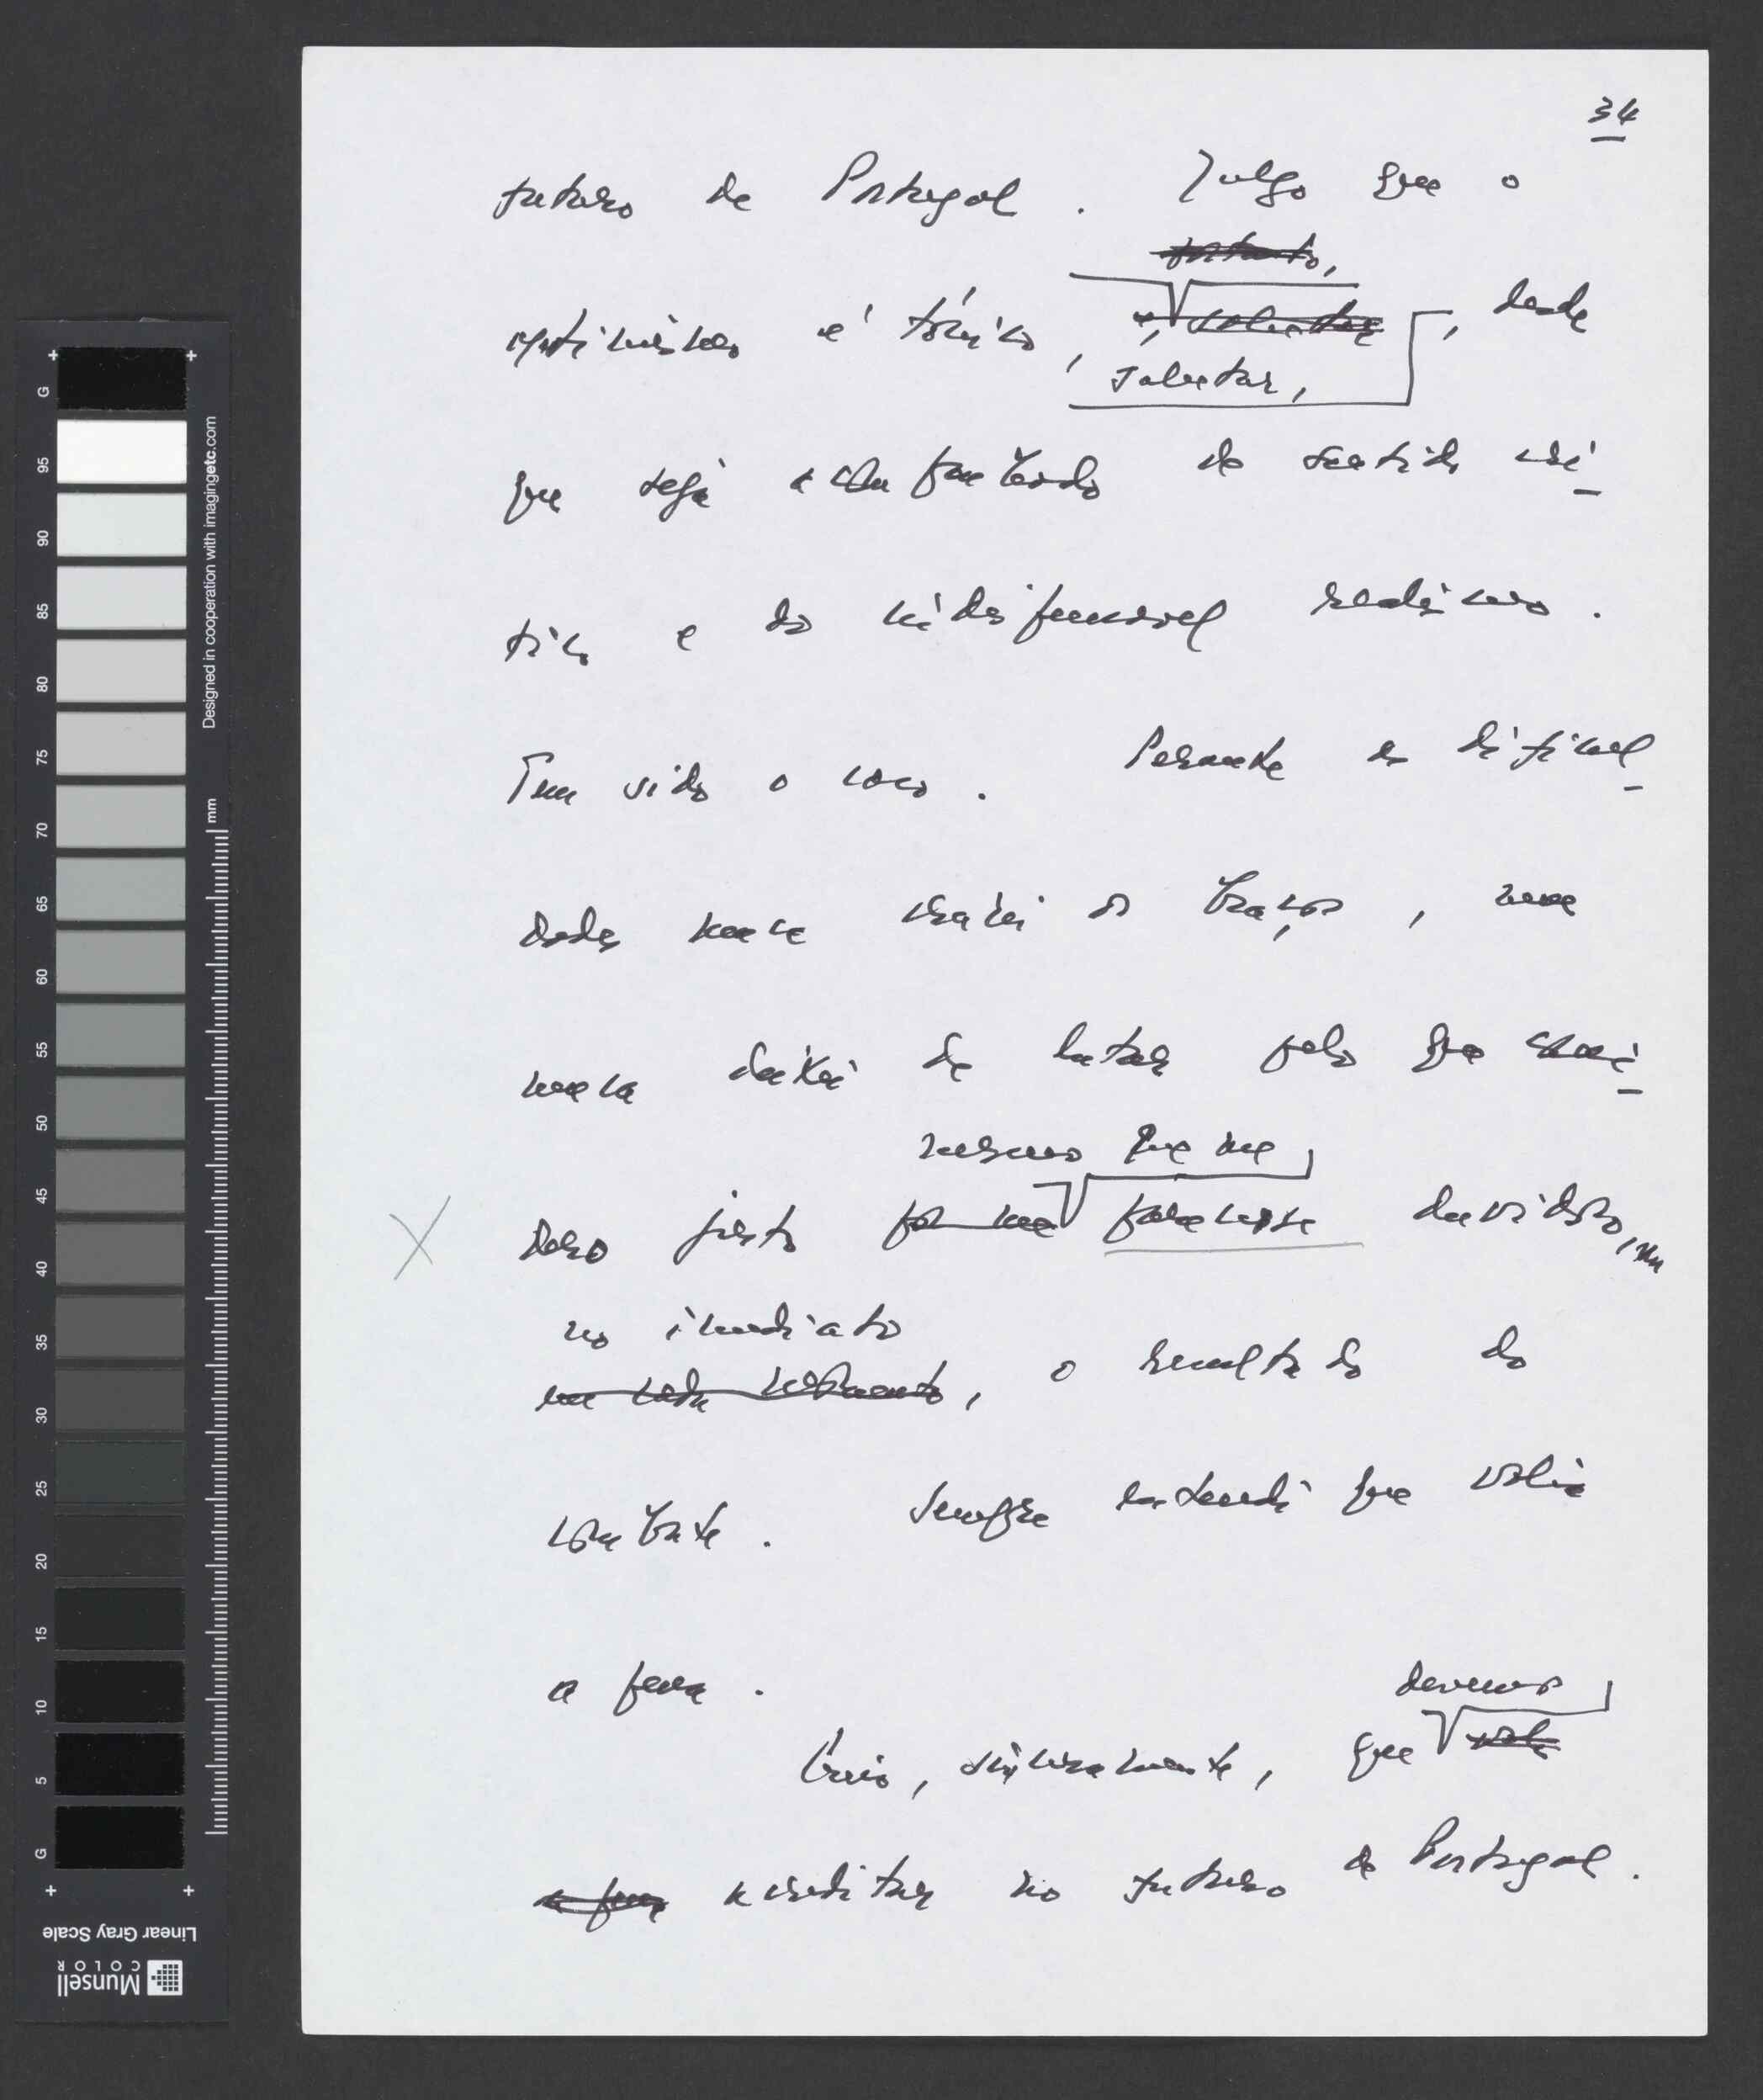 34
futuro de Portugal. Julgo que o
portanto,
optimismo é tónico, e, salutar, desde
salutar,
que seja acompanhado do sentido crí-
tico e do indispensável realismo.
Tem sido o caso. Perante as dificul-
dades nunca cruzei os braços, nem
nunca deixei de lutar pelo que consi-
mesmo que me
dero justo por me parecesse duvidoso,
no imediato
em cada momento, o resultado do
combate. Sempre entendi que valia
a pena.
devemos
Creio, sinceramente, que vale
a pena acreditar no futuro de Portugal.
G
95
90
85
80
75
70
65
60
55
50
45
40
35
30
25
20
15
10
5
G
Designed in cooperation with imagingetc.com
mm
Linear Gray Scale
Munsell
COLOR